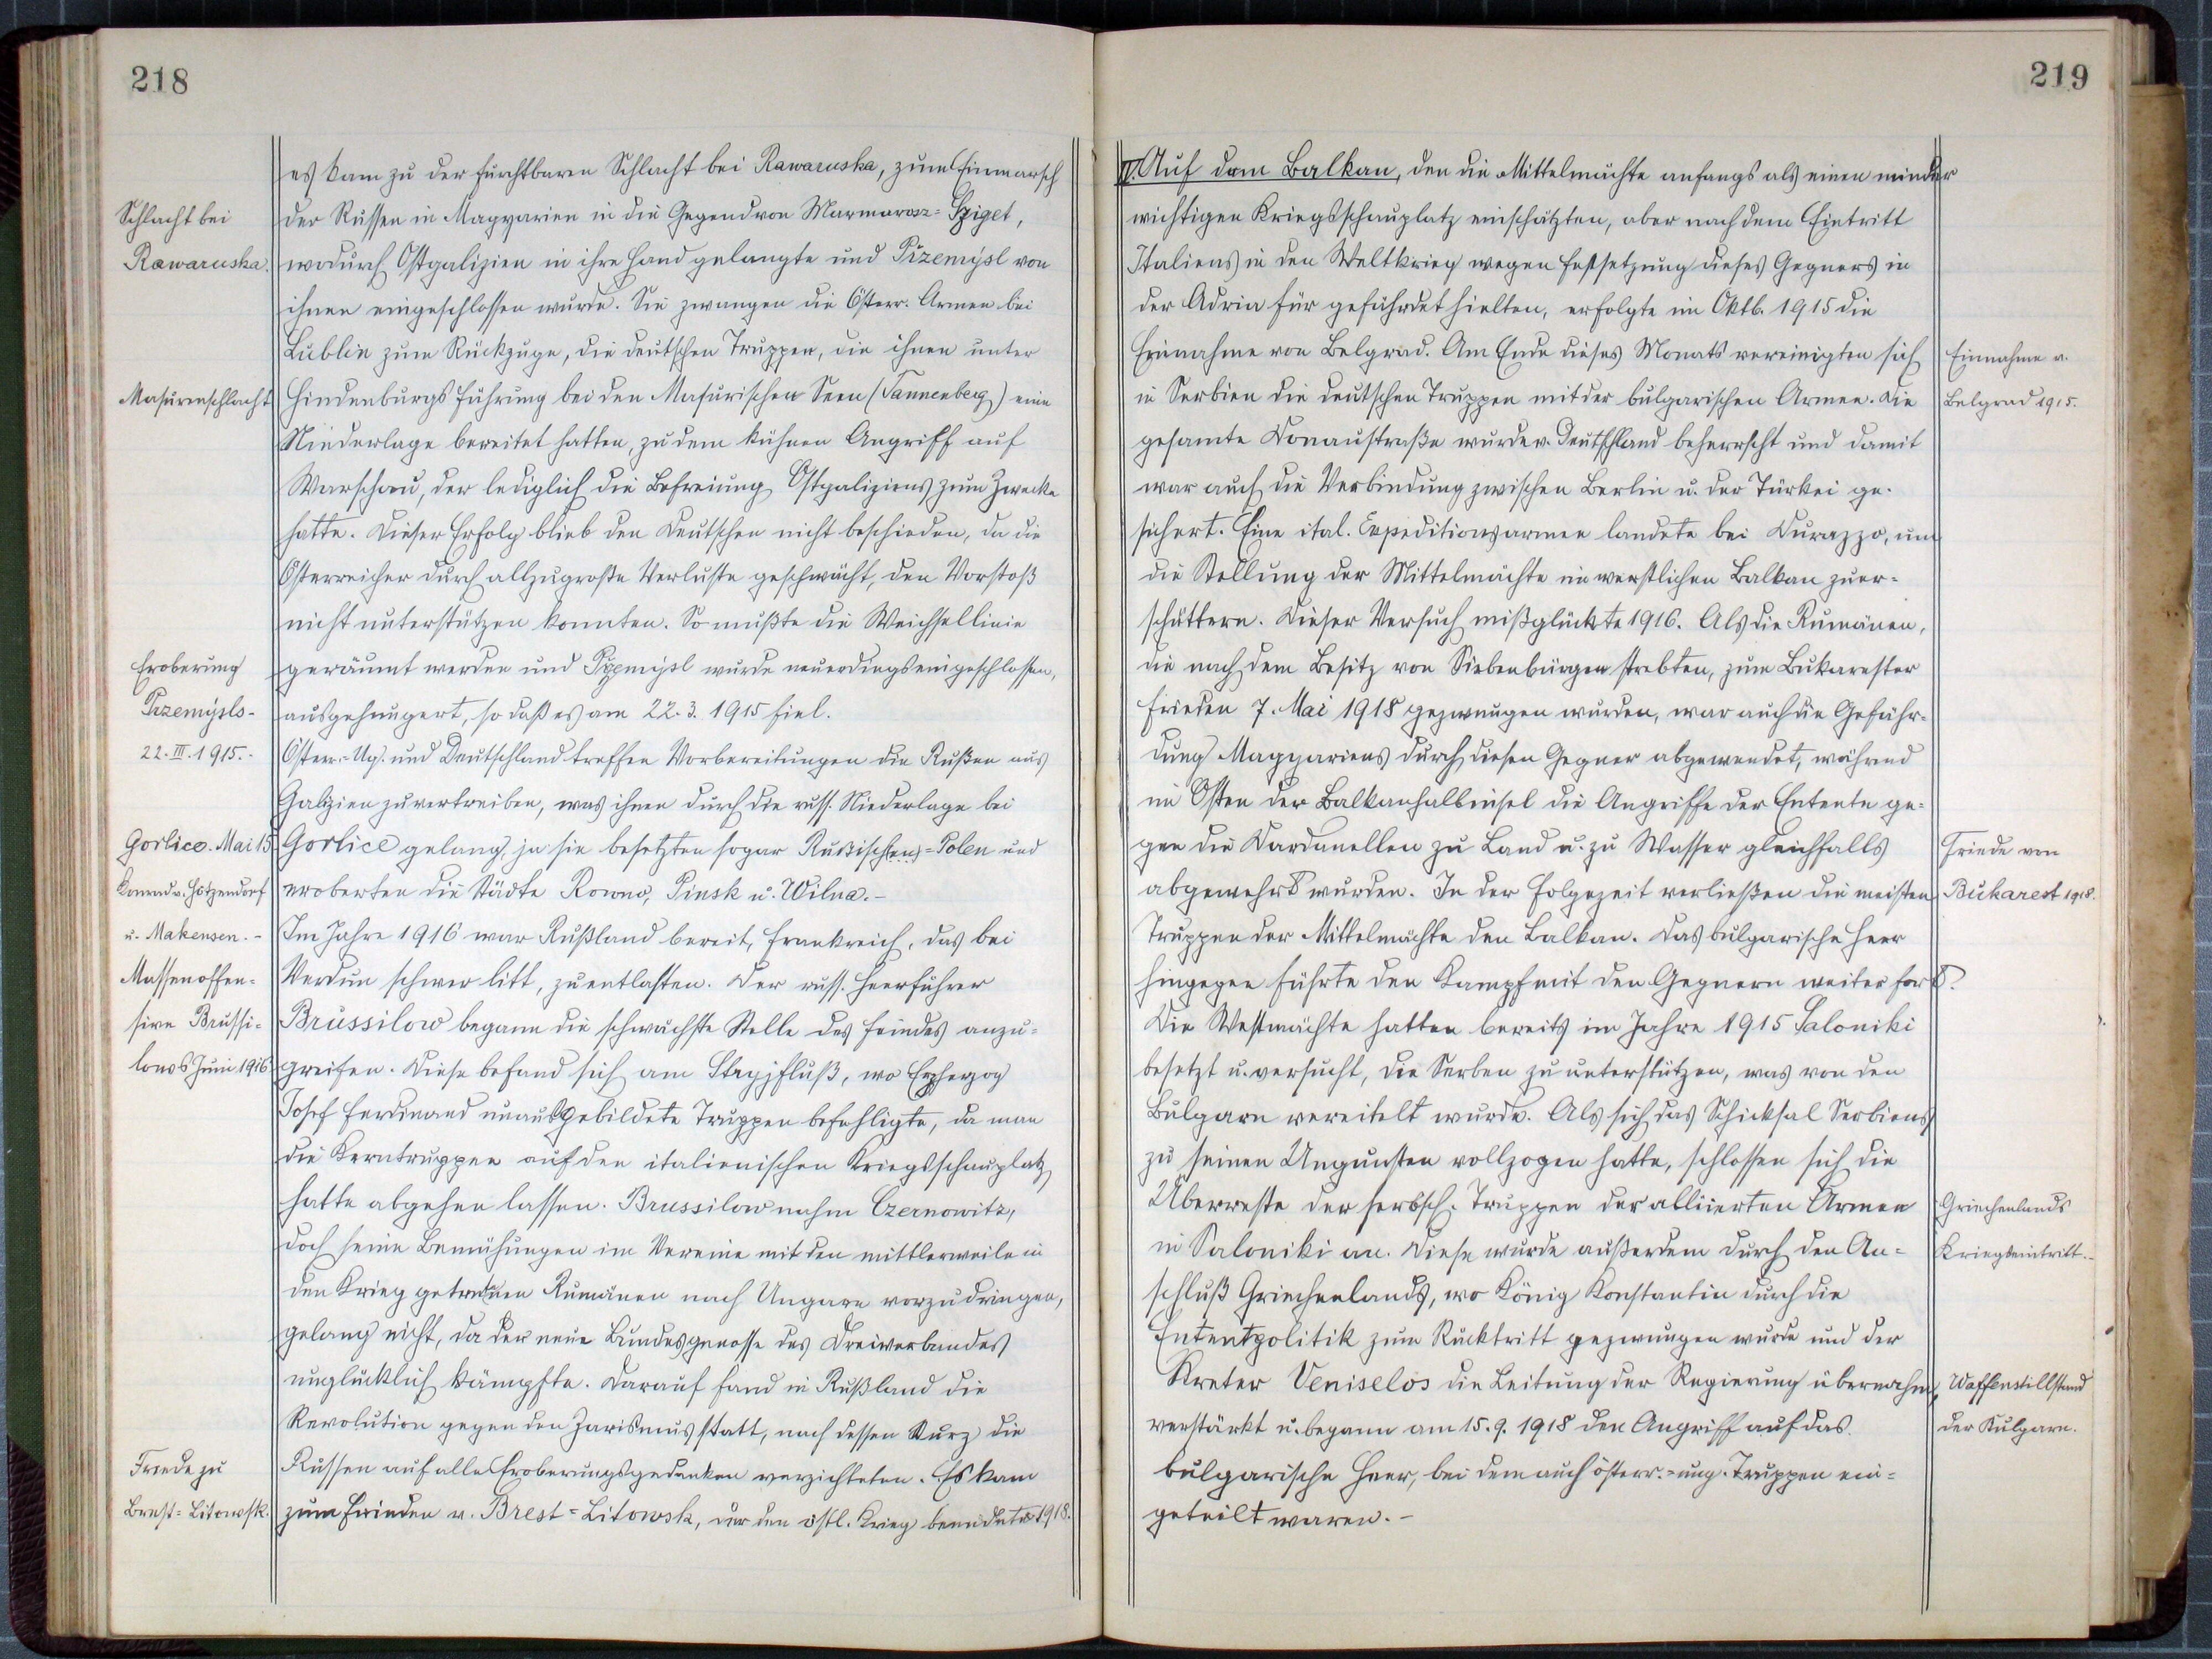 218
es kam zu der furchtbaren Schlacht bei Rawaruska, zum Einmarsch
der Russen in Magyarien in die Gegend von Marmarosz=Sziget,
wodurch Ostgalizien in ihre Hand gelangte und Przemysl von
ihnen eingeschlossen wurde. Sie zwangen die Österr. Armee bei
Lublin zum Rückzuge, die deutschen Truppen, die ihnen unter
Hindenburgs Führung bei den Masurischen Seen (Tannenberg) eine
Niederlage bereitet hatten, zu dem kühnen Angriff auf
Warschau, der lediglich die Befreiung Ostgaliziens zum Zwecke
hatte. Dieser Erfolg blieb den Deutschen nicht beschieden, da die
Österreicher durch allzugroße Verluste geschwächt, den Vorstoß
nicht unterstützen konnten. So mußte die Weichsellinie
geräumt werden und Przemysl wurde neuerdings eingeschlossen,
ausgehungert, so daß es am 22.3.1915 fiel.
Österr.=Ug. und Deutschland treffen Vorbereitungen die Rußen aus
Galizien zu vertreiben, was ihnen durch die russ. Niederlage bei
Gorlice gelang, ja sie besetzten sogar Rußisch(en)=Polen und
eroberten die Städte Rowno, Pinsk u. Wilna.-
Im Jahre 1916 war Rußland bereit, Frankreich, das bei
Verdun schwer litt, zu entlasten. Der russ. Heerführer
Brussilow begann die schwächste Stelle des Feindes anzu=
greifen. Diese befand sich am Stryjfluß, wo Erzherzog
Josef Ferdinand unausgebildete Truppen befehligte, da man
die Kerntruppen auf den italienischen Kriegsschauplatz
hatte abgehen lassen. Brussilow nahm Czernowitz,
doch seine Bemühungen im Vereine mit den mittlerweile in
den Krieg getretenen Rumänen nach Ungarn vorzudringen,
gelang nicht, da der neue Bundesgenosse des Dreiverbandes
unglücklich kämpfte. Darauf fand in Rußland die
Revolution gegen den Zarismus statt, nach dessen Sturz die
Russen auf alle Eroberungsgedanken verzichteten. Es kam
zum Frieden v. Brest=Litowsk, der den östl. Krieg beendete 1918.
Schlacht bei
Rawaruska.
Masurenschlacht
Eroberung
Przemysls-
22.III.1915.-
Gorlice. Mai 15
Konrad v. Hötzendorf
u. Makensen.-
Massenoffen=
sive Brussi=
lows Juni 1916
Friede zu
Brest=Litowsk.
219
II. Auf dem Balkan, den die Mittelmächte anfangs als einen minder
wichtigen Kriegsschauplatz einschätzten, aber nach dem Eintritt
Italiens in den Weltkrieg wegen Festsetzung dieses Gegners in
der Adria für gefährdet hielten, erfolgte im Oktb. 1915 die
Einnahme von Belgrad. Am Ende dieses Monats vereinigten sich
in Serbien die deutschen Truppen mit der bulgarischen Armee. Die
gesamte Donaustraße wurde v. Deutschland beherrscht und damit
war auch die Verbindung zwischen Berlin u. der Türkei ge-
sichert. Eine ital. Expeditionsarmee landete bei Durazzo, um
die Stellung der Mittelmächte im westlichen Balkan zu er=
schüttern. Dieser Versuch mißglückte 1916. Als die Rumänen,
die nach dem Besitz von Siebenbürgen strebten, zum Bukarester
Frieden 7. Mai 1918 gezwungen wurden, war auch die Gefähr=
dung Magyariens durch diesen Gegner abgewendet, während
im Osten der Balkanhalbinsel die Angriffe der Entente ge=
gen die Dardanellen zu Land u. zu Wasser gleichfalls
abgewehrt wurden. In der Folgezeit verließen die meisten
Truppen der Mittelmächte den Balkan. Das bulgarische Heer
hingegen führte den Kampf mit den Gegnern weiter fort.
Die Westmächte hatten bereits im Jahre 1915 Saloniki
besetzt u. versucht, die Serben zu unterstützen, was von den
Bulgarn vereitelt wurde. Als sich das Schicksal Serbiens
zu seinen Ungunsten vollzogen hatte, schlossen sich die
Überreste der serbsch. Truppen der alliierten Armee
in Saloniki an. Diese wurde außerdem durch den An=
schluß Griechenlands, wo König Konstantin durch die
Ententpolitik zum Rücktritt gezwungen wurde und der
Kreter Veniselos die Leitung der Regierung übernahm,
verstärkt u. begann am 15.9.1918 den Angriff auf das
bulgarische Heer, bei dem auch österr.=ung. Truppen ein=
geteilt waren.-
Einnahme v.
Belgrad 1915.
Friede von
Bukarest 1918.
Griechenlands
Kriegseintritt.-
Waffenstillstand
der Bulgarn.